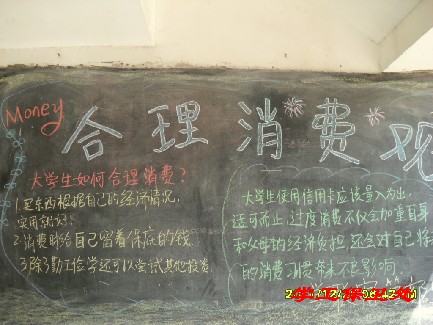 Money
合理消费观
大学生如何合理消费?
1.买东西根据自己的经济情况,
实用就好;
2.消费时给自己留着保底的钱.
3.除了勤工俭学还可以尝试其他投资.
大学生使用信用卡应该量入为出,
适可而止,过度消费不仅会加重自身
和父母的经济负担,还会对自己将
的消费习惯带来不良影响.